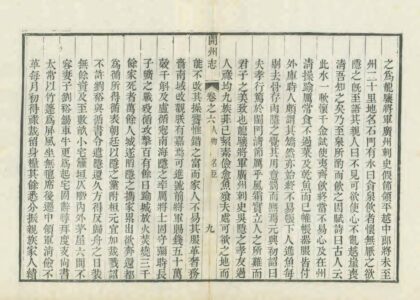 之爲龍驤將軍廣州刺史假節領平越中郎將未至
州二十里地名石門有水曰貪泉飲者懷無厭之欲
隱之旣至語其親人曰不見可欲使心不亂越嶺喪
清吾知之矣乃至泉所酌而飲之因賦詩曰古人云
此水一歃懷千金試使夷齊飲終當不易心及在州
清操踰厲常食不過菜及乾魚而已帷帳器服皆付
外庫時人頗謂其矯然亦終始不易帳下人進魚每
剔去骨存肉隱之覺其用意罰而黜焉元興初詔曰
夫孝行篤於閨門清節厲乎風霜實立人之所難而
君子之美致也龍驤將軍廣州刺史吳隱之孝友過
人祿均九族菲己潔素儉愈魚飧夫處可欲之地而
開州志 卷之六 人物 名臣 九
能不改其操饗惟錯之富而家人不易其服革奢務
嗇南域改觀朕有嘉焉可進號前將軍賜錢五十萬
穀千斛及盧循寇南海隱之率厲將士固守彌時長
子曠之戰歿循攻擊百有餘日踰城放火焚燒三千
餘家死者萬餘人城遂陷隱之攜家累出欲奔還都
爲循所得循表朝廷以隱之黨附桓元宜加裁戮詔
不許劉裕與循書令遣隱之還久方得反歸舟之日裝
無餘資及至數畝小宅籬垣仄陋內外茅屋六間不
容妻子劉裕賜車牛更爲起宅固辭尋拜度支尚書
太常以竹篷爲屏風坐無氈席後遷中領軍清儉不
革每月初得祿裁留身糧其餘悉分振親族家人績